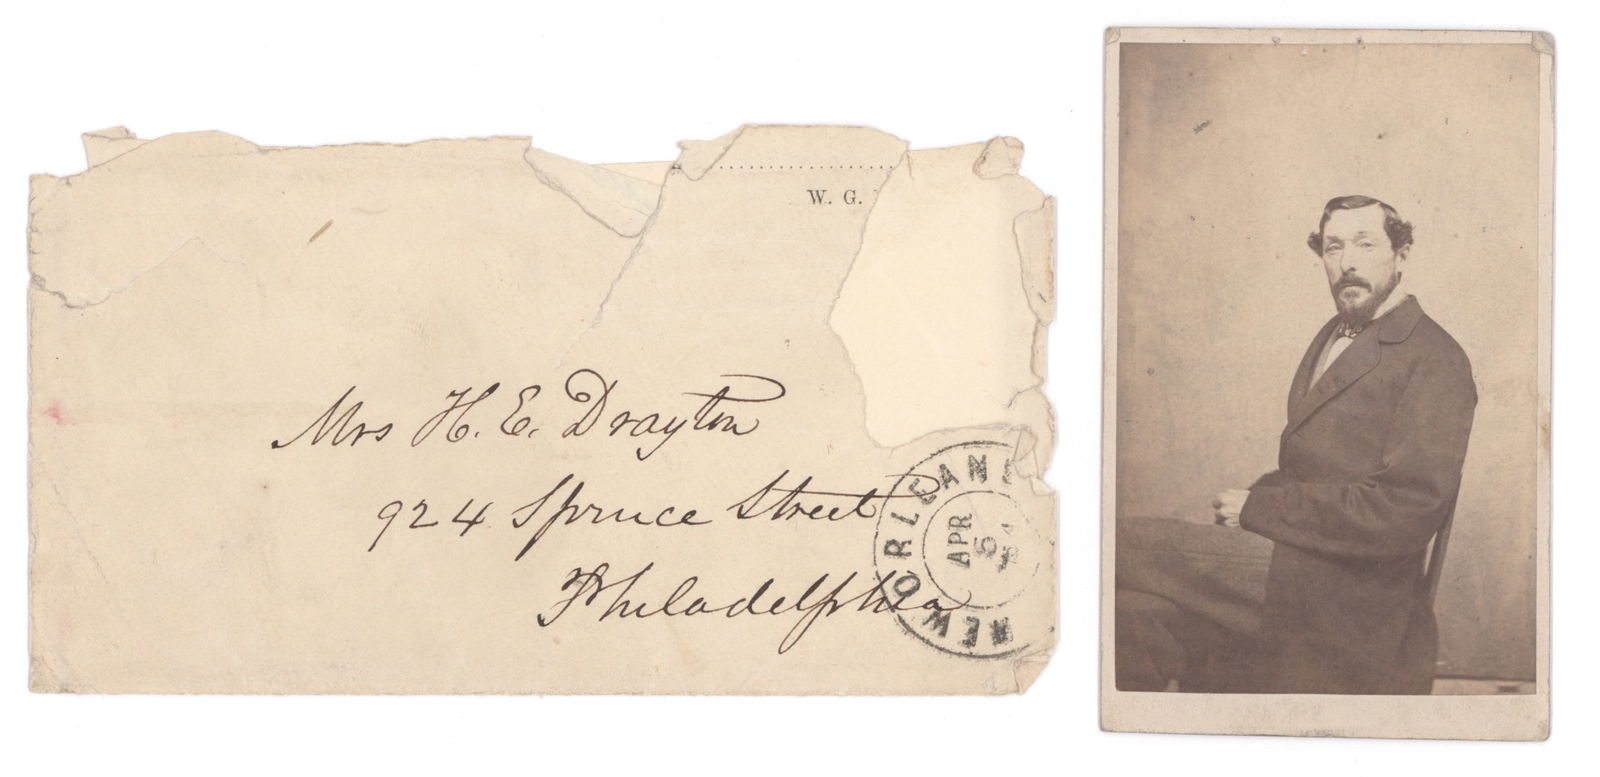 W. G.
Mrs H. E. Drayton
924 Spruce Street
Philadelphia
NEW ORLEANS
APR
5